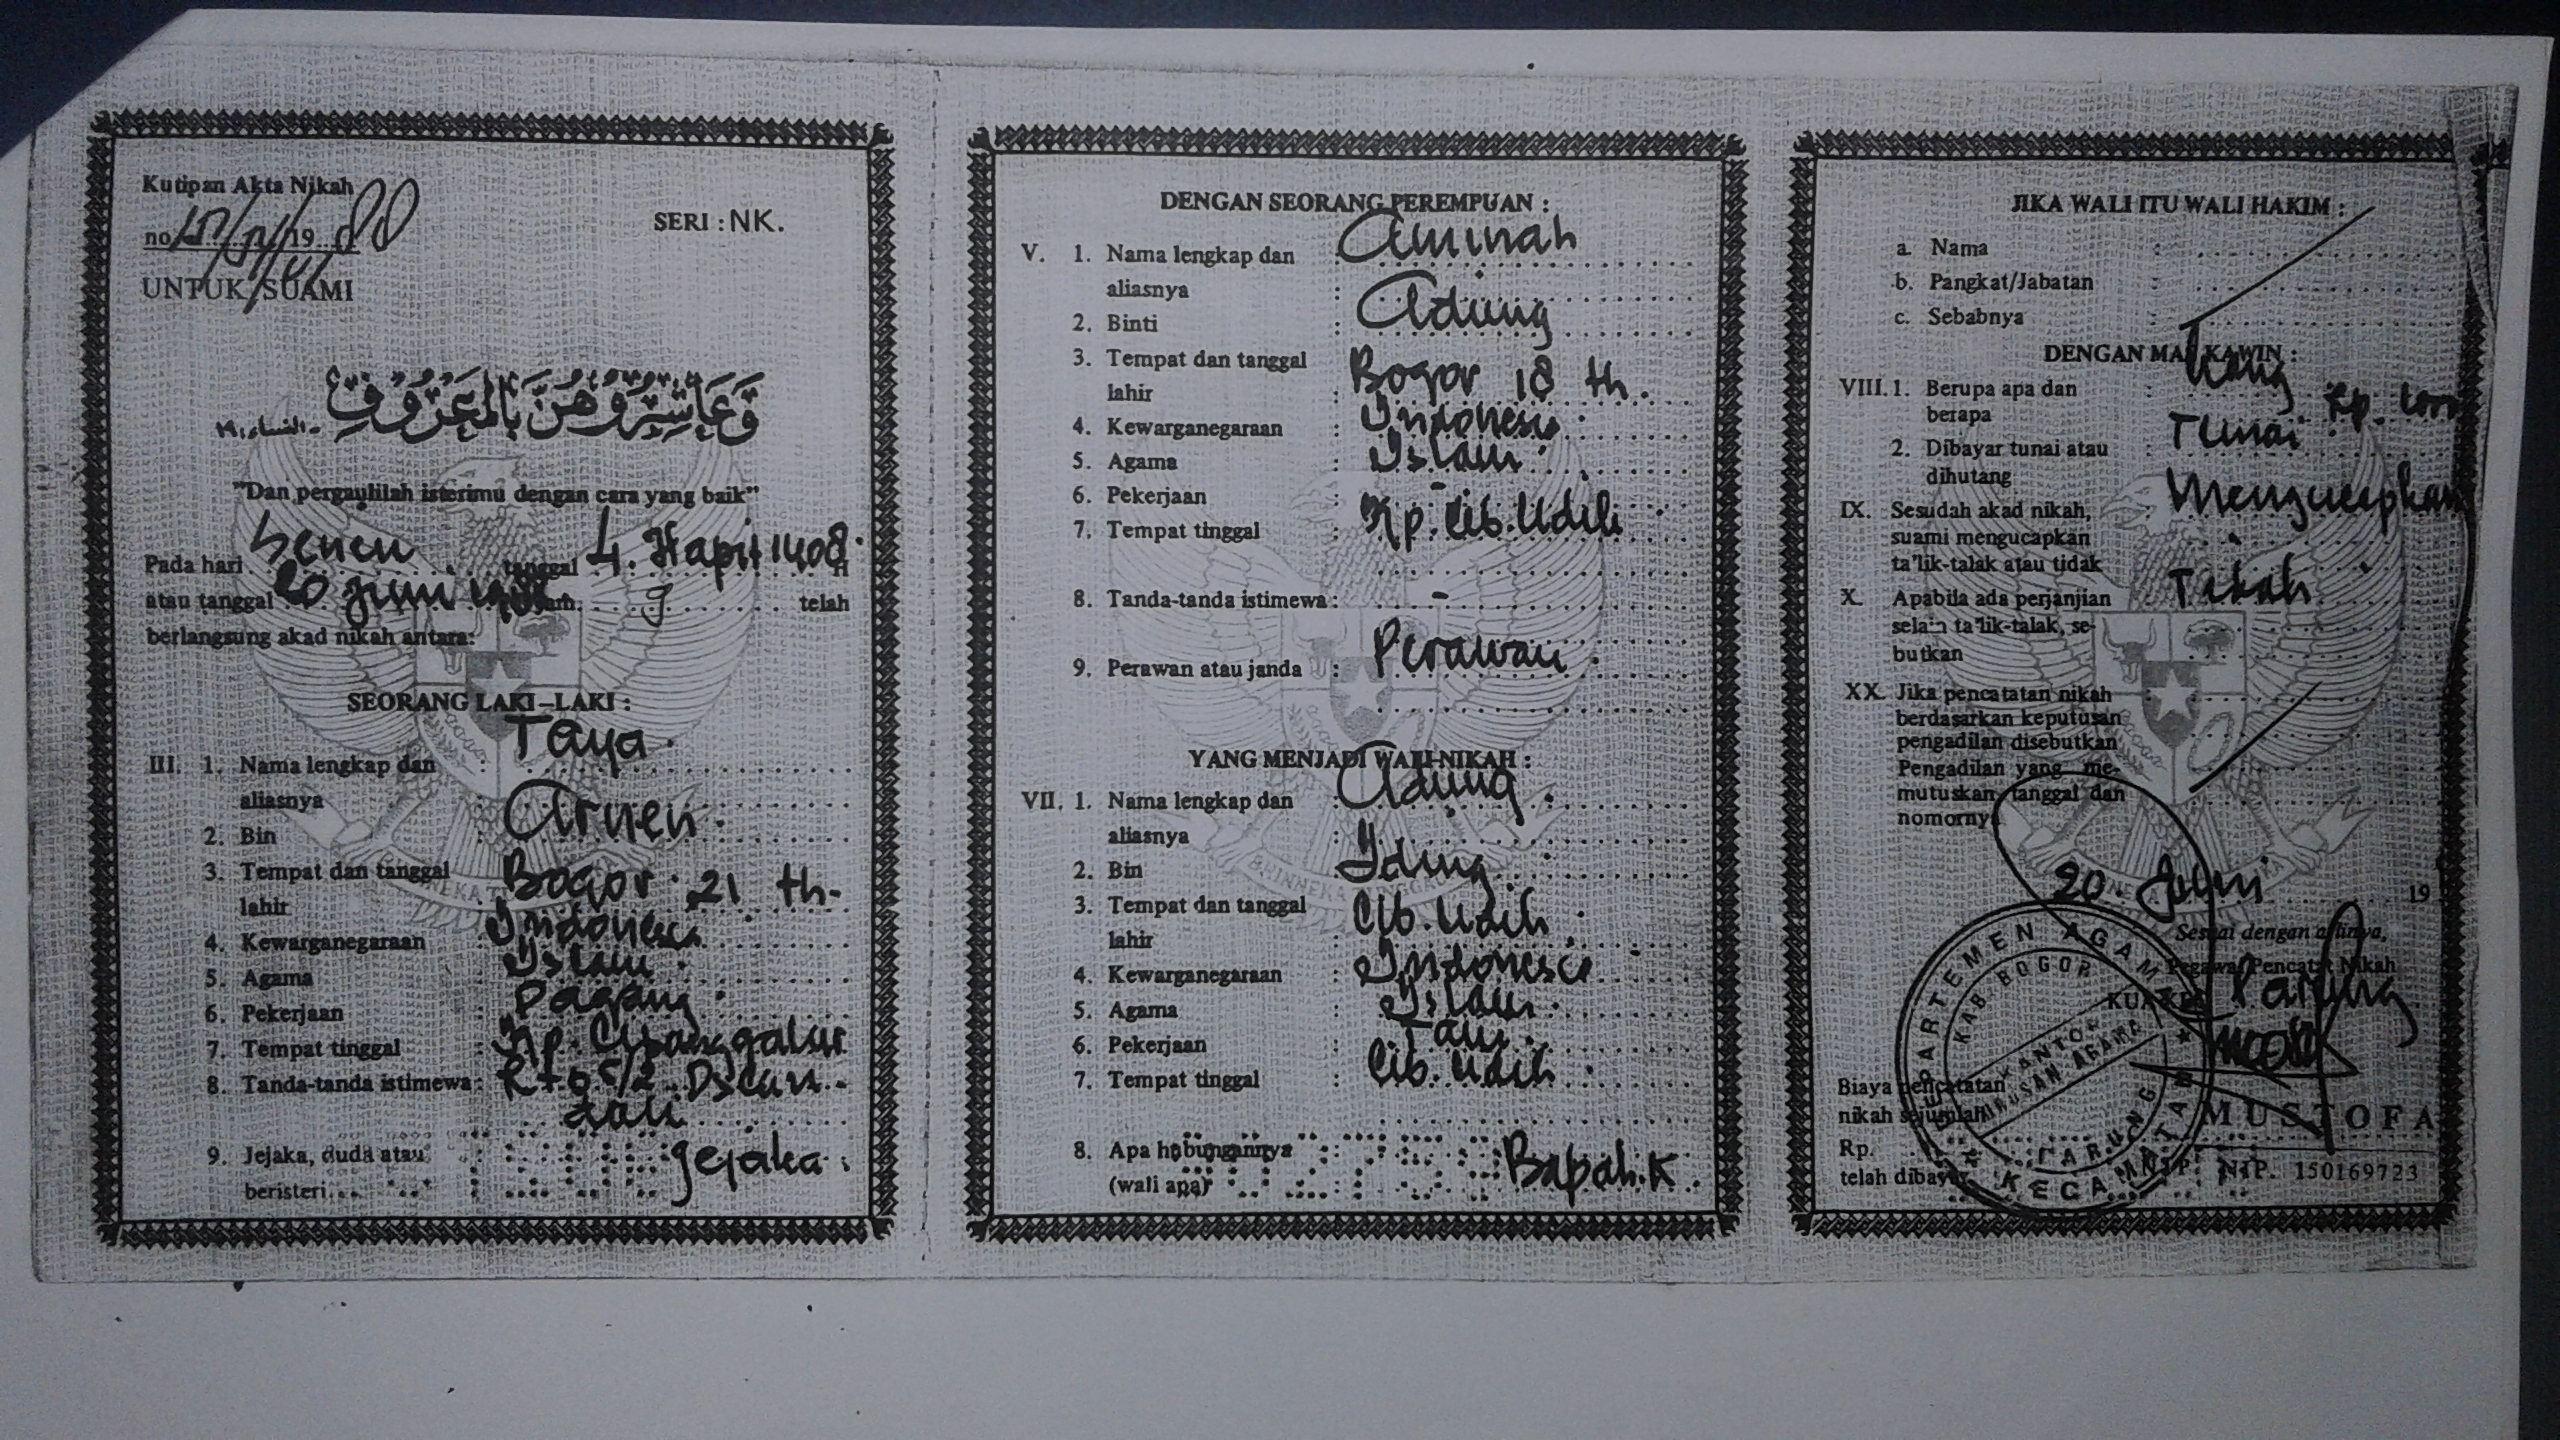 Kutipan Akta Nikah
no 19
SERI : NK.
UNTUK SUAMI
وَعَاشِرُوْهُنَّ بِالْمَعْرُوْفِ
- النساء ١٩
"Dan pergaulilah isterimu dengan cara yang baik"
Pada hari Senen tanggal 4. Hapit 1408. H
atau tanggal 20 Juni jam 9 telah
berlangsung akad nikah antara:
SEORANG LAKI-LAKI :
III. 1. Nama lengkap dan : Taya.
aliasnya
2. Bin : Arnen.
3. Tempat dan tanggal Bogor. 21 th.
lahir
4. Kewarganegaraan : Indonesia
5. Agama : Islam.
6. Pekerjaan : Dagang.
7. Tempat tinggal : Kp.
8. Tanda-tanda istimewa :
9. Jejaka, duda atau Jejaka.
beristeri
DENGAN SEORANG PEREMPUAN :
V. 1. Nama lengkap dan : Aminah
aliasnya :
2. Binti : Adung
3. Tempat dan tanggal Bogor 18 th.
lahir :
4. Kewarganegaraan : Indonesia
5. Agama : Islam.
6. Pekerjaan : -
7. Tempat tinggal : Kp. Cib. Udik
8. Tanda-tanda istimewa : -
9. Perawan atau janda : Perawan
YANG MENJADI WALI NIKAH :
VII. 1. Nama lengkap dan : Adung.
aliasnya :
2. Bin : Iding
3. Tempat dan tanggal Cib. Udik.
lahir :
4. Kewarganegaraan : Indonesia
5. Agama : Islam.
6. Pekerjaan : Tani.
7. Tempat tinggal : Cib. Udik
8. Apa hubungannya Bapak. K
(wali apa)
JIKA WALI ITU WALI HAKIM :
a. Nama :
b. Pangkat/Jabatan :
c. Sebabnya :
DENGAN MAS KAWIN :
VIII. 1. Berupa apa dan : Uang Rp.
berapa
2. Dibayar tunai atau : Tunai
dihutang
IX. Sesudah akad nikah, : Mengucapkan
suami mengucapkan
ta'lik-talak atau tidak
X. Apabila ada perjanjian :
selain ta'lik-talak, se-
butkan
XX. Jika pencatatan nikah
berdasarkan keputusan
pengadilan disebutkan
Pengadilan yang me-
mutuskan tanggal dan
nomornya
20. Juni 19
Sesuai dengan aslinya,
Pegawai Pencatat Nikah
KUA Parung
DEPARTEMEN AGAMA
KAB. BOGOR
KANTOR
URUSAN AGAMA
PARUNG
KECAMATAN
Biaya pencatatan
nikah sejumlah
Rp.
telah dibayar
MUSTOFA
NIP. NIP. 150169723